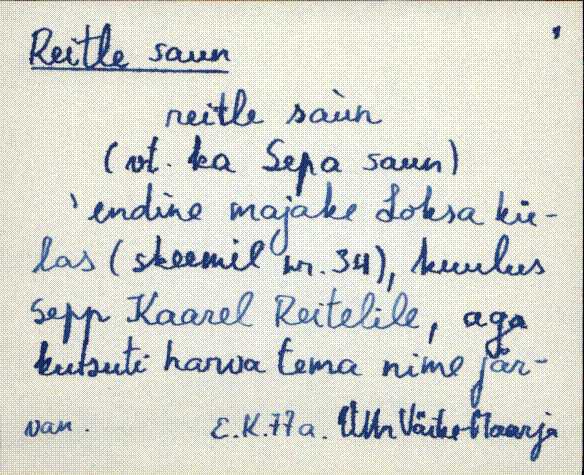 Reitle saun
reitle saùn
(vt. ka Sepa saun)
'endine majake Loksa kü-
las (skeemil nr. 34), kuulus
sepp Kaarel Reitelile, aga
kutsuti harva tema nime jär-
van. E.K.77a. Väike-Maarja